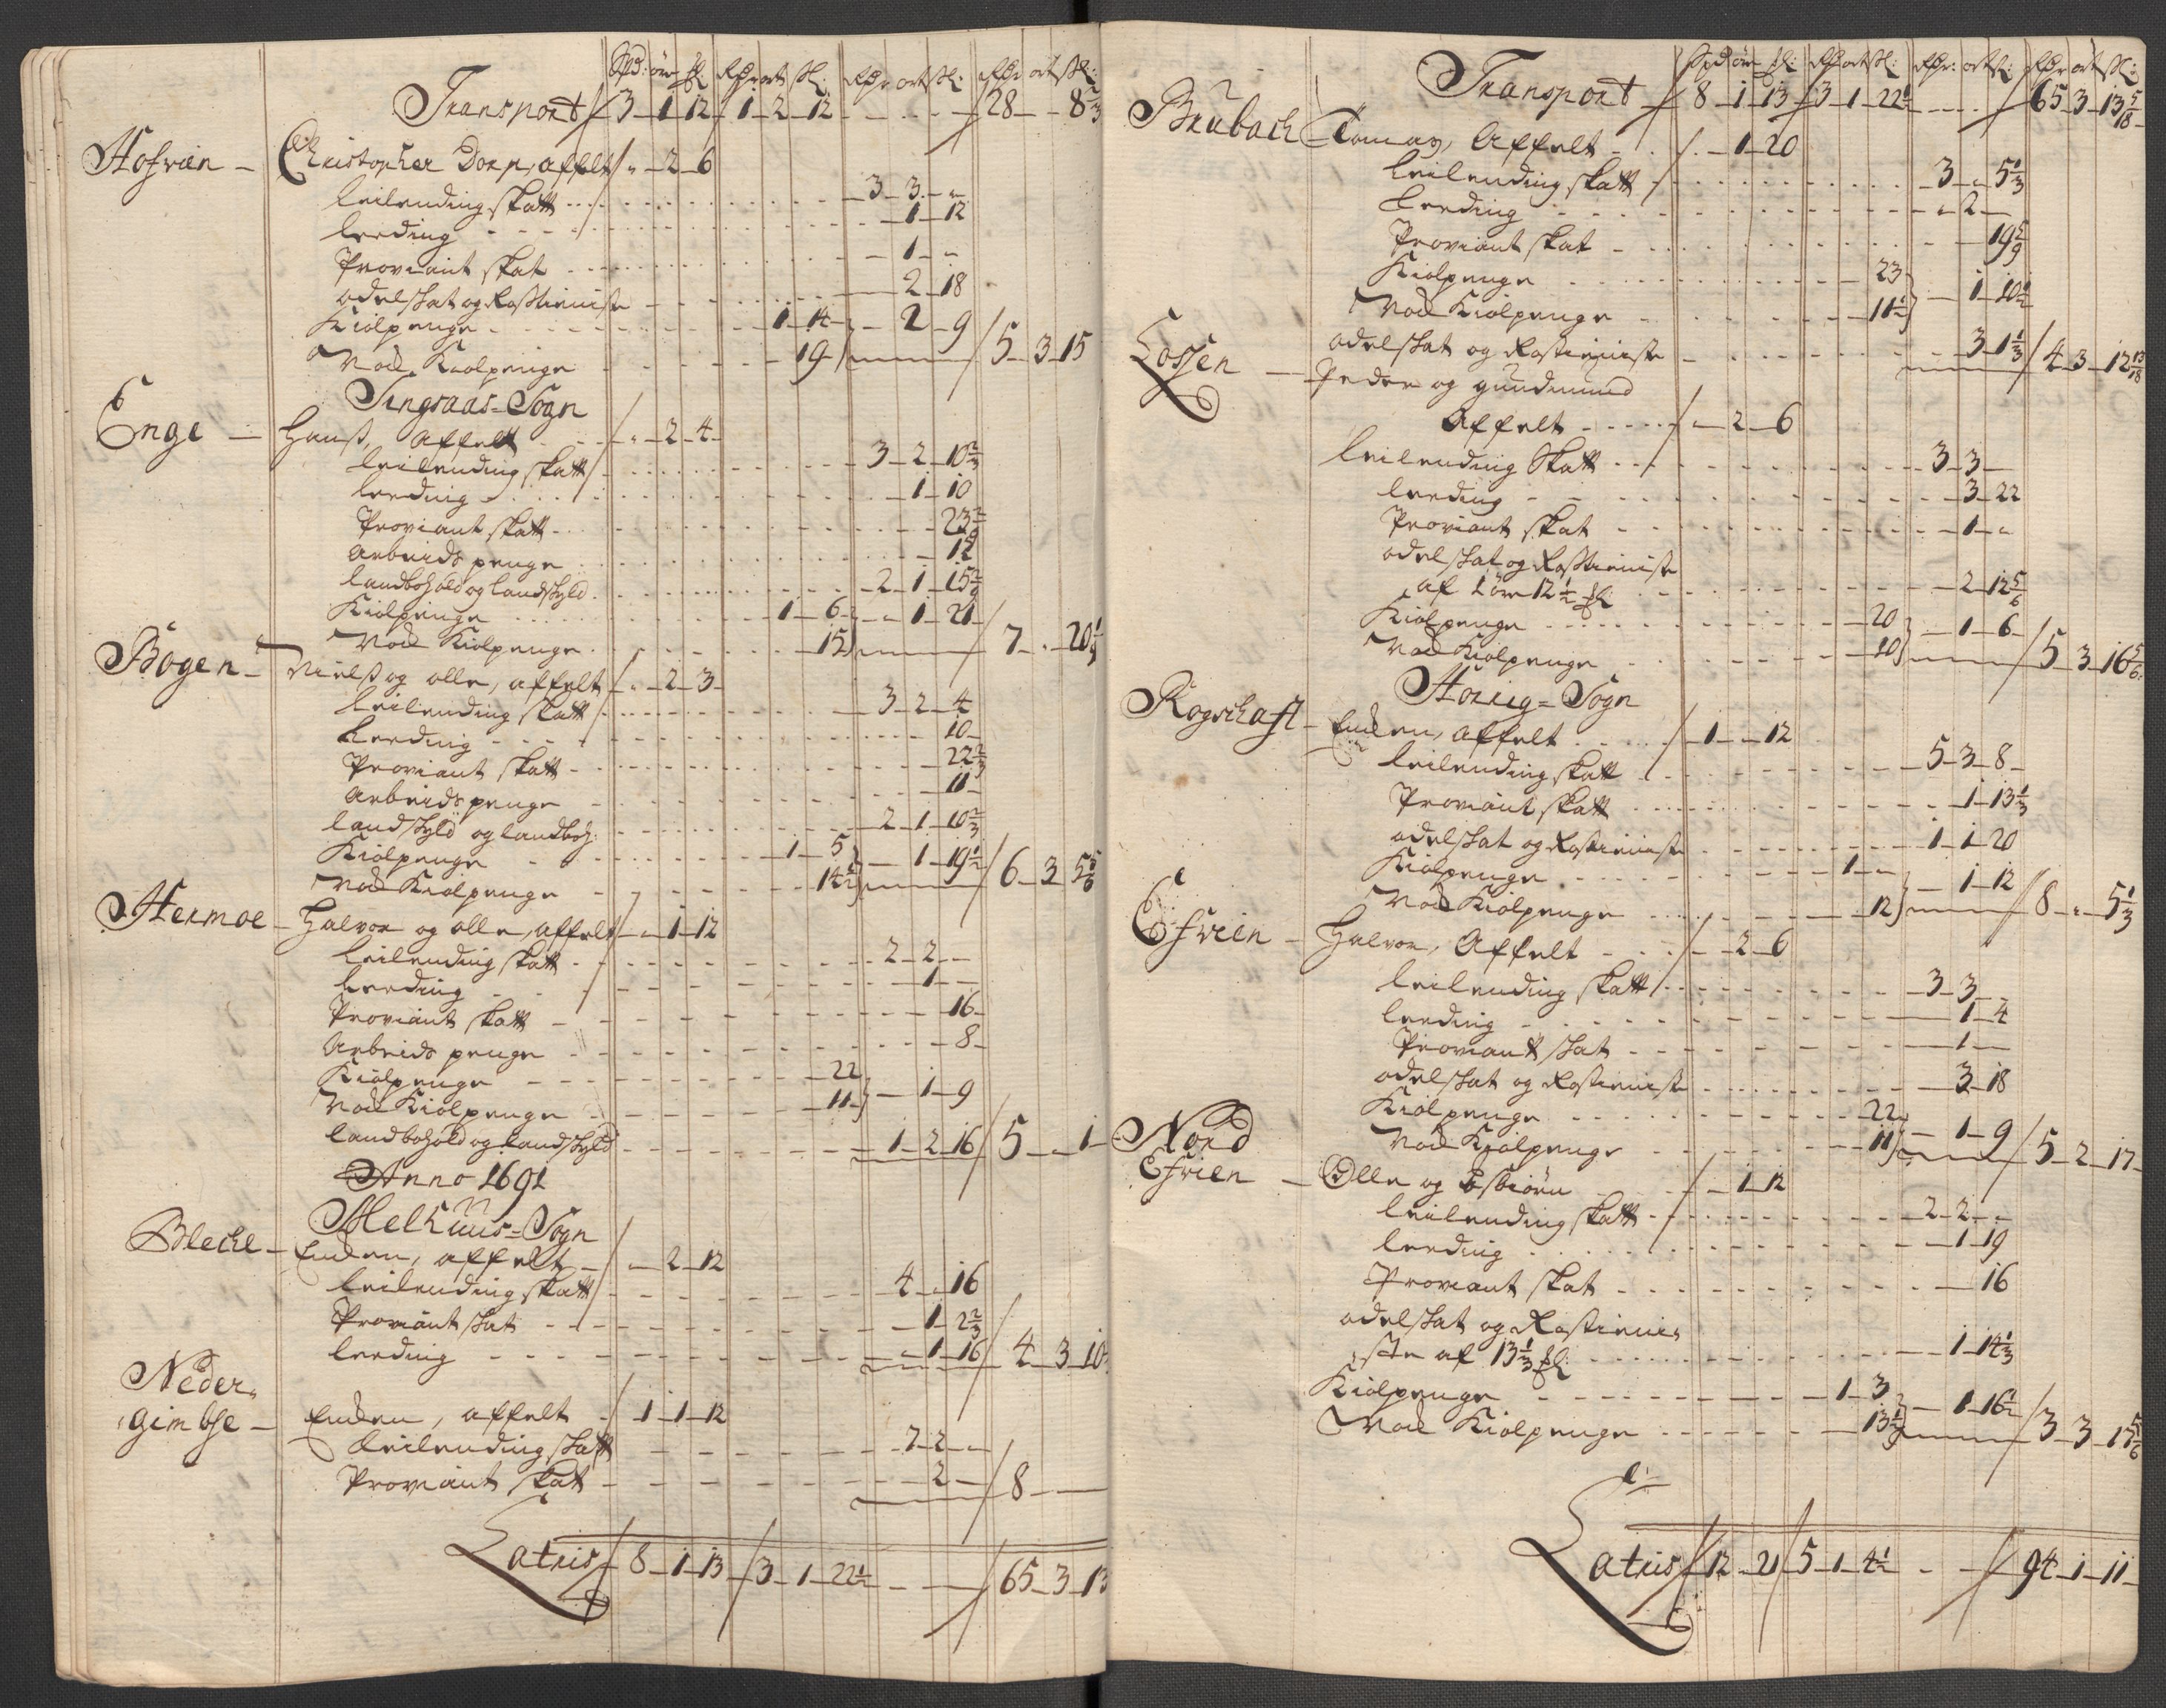 Spd: ör ſl: Rdr ort ſk: Rdr ort ſk: Rdr ort ſk:
Transport 3 1 12 1 2 12 28 - 8 2/3
Hofrien Christopher Dorp, affelt 2 6
Leilending skatt 3 3 -
Leeding 1 12
Proviant skat 1 -
odelskat og Rostieniste 2 18
Kiölpenge 1 14 2 9
Noed Kiölpenge 19 5 3 15
Singsaas Sogn
Enge Hanß, Affelt 2 4
Leilending skatt 3 2 10 2/3
Leeding 1 10
Proviant skatt 23 2/9
Arbeids penge 12
Landbohold og Landskyld 2 1 15 2/9
Kiölpenge 1 6 1 21
Noed Kiölpenge 15 7 - 20 1/9
Bogen Nielß og olle, affelt 2 3
Leilending skatt 3 2 4
Leeding 10
Proviant skatt 22 2/3
Arbeidspenge 11
Landskyld og Landboh: 2 1 10 2/3
Kiölpenge 1 5 1 19 1/2
Noed Kiölpenge 14 1/2 6 3 5 5/6
Hermoe Halvor og olle, affelt 1 12
Leilending skatt 2 2 -
Leeding 1 -
Proviant skatt 16
Arbeids penge 8
Kiölpenge 22 1 9
Noed Kiölpenge 11
Landbohold og Landskyld 1 2 16 5 - 1
Anno 1691
Melhuus Sogn
Bleche Enken, affelt 2 12
Leilending skatt 4 - 16
Proviant skat 1 2 2/3
Leeding 1 16 4 3 10
Neder-
gimbse Enken, affelt 1 1 12
Leilending skatt 7 2 -
Proviant skat 2 - 8 - -
Latris 8 1 13 3 1 22 1/2 65 3 13
Spd ör ſl: Rdr ort ſk: Rdr: ort ſk: Rdr ort ſk:
Transport 8 1 13 3 1 22 1/2 65 3 13 5/18
Brubach Tomas, Affelt 1 20
Leilending skatt 3 - 5 1/3
Leeding 2 -
Proviant skat 19 5/9
Kiölpenge 23 1 10 1/2
Noed Kiölpenge 11 1/2
odelskat og Rostieniste 3 1 1/3 4 3 12 13/18
Lossen Peder og gundmund
Affelt 2 6
Leilending Skatt 3 3 -
Leeding 3 22
Proviant skat 1 -
odelskat og Rostieniste
af 1 öre 12 1/2 ſl: 2 12 5/6
Kiölpenge 20 1 6
Noed Kiölpenge 10 5 3 16 5/6
Horrig Sogn
Rogschaft Enken, affelt 1 - 12
Leilending skatt 5 3 8
Proviant skatt 1 13 1/3
odelskat og Rostieniste 1 1 20
Kiölpenge 1 - 1 12
Noed Kiölpenge 12 8 - 5 1/3
Efrien Halvor, Affelt 2 6
Leilending skatt 3 3 -
Leeding 1 4
Proviant skat 1 -
odelskat og Rostieniste 3 18
Kiölpenge 22 1 9
Noed Kiölpenge 11 5 2 17
Nord
Efrien Olle og Esbiörn 1 12
Leilending skatt 2 2 -
Leeding 1 19
Proviant skat 16
odelskat og Rostieni-
ste af 13 1/3 ſl: 1 14 1/3
Kiölpenge 1 3 1 16 1/2
Noed Kiölpenge 13 1/2 3 3 17 5/6
Latris 12 - 21 5 1 4 1/2 94 1 11